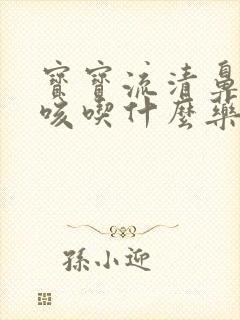 寶寶流清鼻
咳喫什麼藥
孫小迎